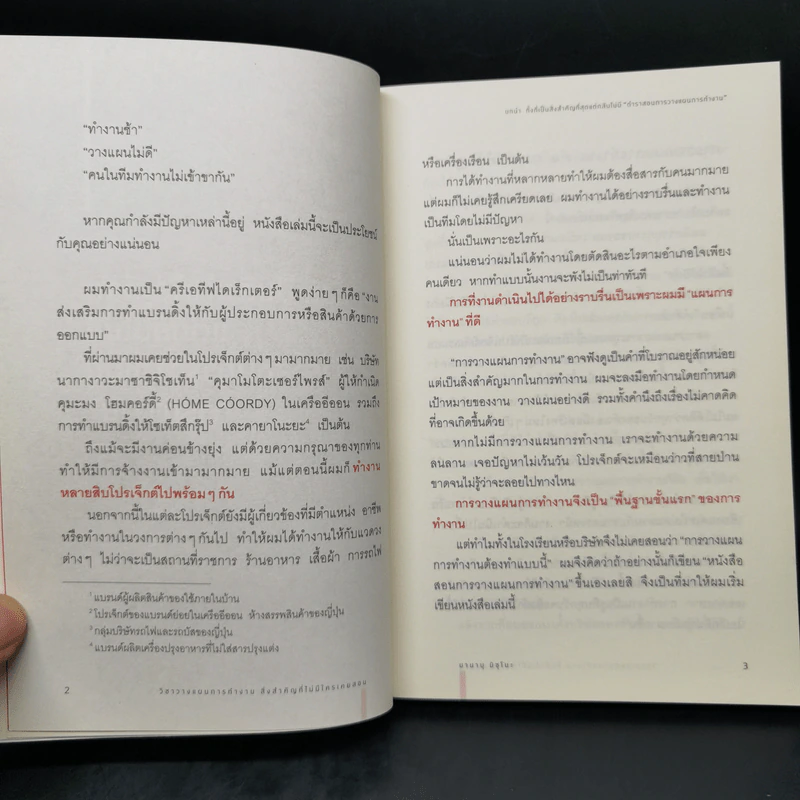 "ทำงานช้า"
"วางแผนไม่ดี"
"คนในทีมทำงานไม่เข้าขากัน"
หากคุณกำลังมีปัญหาเหล่านี้อยู่ หนังสือเล่มนี้จะเป็นประโยชน์
กับคุณอย่างแน่นอน
ผมทำงานเป็น "ครีเอทีฟไดเร็กเตอร์" พูดง่ายๆ ก็คือ "งาน
ส่งเสริมการทำแบรนดิ้งให้กับผู้ประกอบการหรือสินค้าด้วยการ
ออกแบบ"
ที่ผ่านมาผมเคยช่วยในโปรเจ็กต์ต่างๆ มามากมาย เช่น บริษัท
นากางาวะมาซาชิจิโชเท็น¹ "คุมาโมโตะเซอร์ไพรส์" ผู้ให้กำเนิด
คุมะมง โฮมคอร์ดี้² (HÓME CÓORDY) ในเครืออีออน รวมถึง
การทำแบรนดิ้งให้โซเท็ตสึกรุ๊ป³ และคายาโนะยะ⁴ เป็นต้น
ถึงแม้จะมีงานค่อนข้างยุ่ง แต่ด้วยความกรุณาของทุกท่าน
ทำให้มีการจ้างงานเข้ามามากมาย แม้แต่ตอนนี้ผมก็ทำงาน
หลายสิบโปรเจ็กต์ไปพร้อมๆ กัน
นอกจากนี้ในแต่ละโปรเจ็กต์ยังมีผู้เกี่ยวข้องที่มีตำแหน่ง อาชีพ
หรือทำงานในวงการต่างๆ กันไป ทำให้ผมได้ทำงานให้กับแวดวง
ต่างๆ ไม่ว่าจะเป็นสถานที่ราชการ ร้านอาหาร เสื้อผ้า การรถไฟ
¹ แบรนด์ผู้ผลิตสินค้าของใช้ภายในบ้าน
² โปรเจ็กต์ของแบรนด์ย่อยในเครืออีออน ห้างสรรพสินค้าของญี่ปุ่น
³ กลุ่มบริษัทรถไฟและรถบัสของญี่ปุ่น
⁴ แบรนด์ผลิตเครื่องปรุงอาหารที่ไม่ใส่สารปรุงแต่ง
2 วิชาวางแผนการทำงาน สิ่งสำคัญที่ไม่มีใครเคยสอน
บทนำ ทั้งที่เป็นสิ่งสำคัญที่สุดแต่กลับไม่มี "ตำราสอนการวางแผนการทำงาน"
หรือเครื่องเรือน เป็นต้น
การได้ทำงานที่หลากหลายทำให้ผมต้องสื่อสารกับคนมากมาย
แต่ผมก็ไม่เคยรู้สึกเครียดเลย ผมทำงานได้อย่างราบรื่นและทำงาน
เป็นทีมโดยไม่มีปัญหา
นั่นเป็นเพราะอะไรกัน
แน่นอนว่าผมไม่ได้ทำงานโดยตัดสินอะไรตามอำเภอใจเพียง
คนเดียว หากทำแบบนั้นงานจะพังไม่เป็นท่าทันที
การที่งานดำเนินไปได้อย่างราบรื่นเป็นเพราะผมมี "แผนการ
ทำงาน" ที่ดี
"การวางแผนการทำงาน" อาจฟังดูเป็นคำที่โบราณอยู่สักหน่อย
แต่เป็นสิ่งสำคัญมากในการทำงาน ผมจะลงมือทำงานโดยกำหนด
เป้าหมายของงาน วางแผนอย่างดี รวมทั้งคำนึงถึงเรื่องไม่คาดคิด
ที่อาจเกิดขึ้นด้วย
หากไม่มีการวางแผนการทำงาน เราจะทำงานด้วยความ
ลนลาน เจอปัญหาไม่เว้นวัน โปรเจ็กต์จะเหมือนว่าวที่สายป่าน
ขาดจนไม่รู้ว่าจะลอยไปทางไหน
การวางแผนการทำงานจึงเป็น "พื้นฐานชั้นแรก" ของการ
ทำงาน
แต่ทำไมทั้งในโรงเรียนหรือบริษัทจึงไม่เคยสอนว่า "การวางแผน
การทำงานต้องทำแบบนี้" ผมจึงคิดว่าถ้าอย่างนั้นก็เขียน "หนังสือ
สอนการวางแผนการทำงาน" ขึ้นเองเลยสิ จึงเป็นที่มาให้ผมเริ่ม
เขียนหนังสือเล่มนี้
มานาบุ มิซุโนะ 3